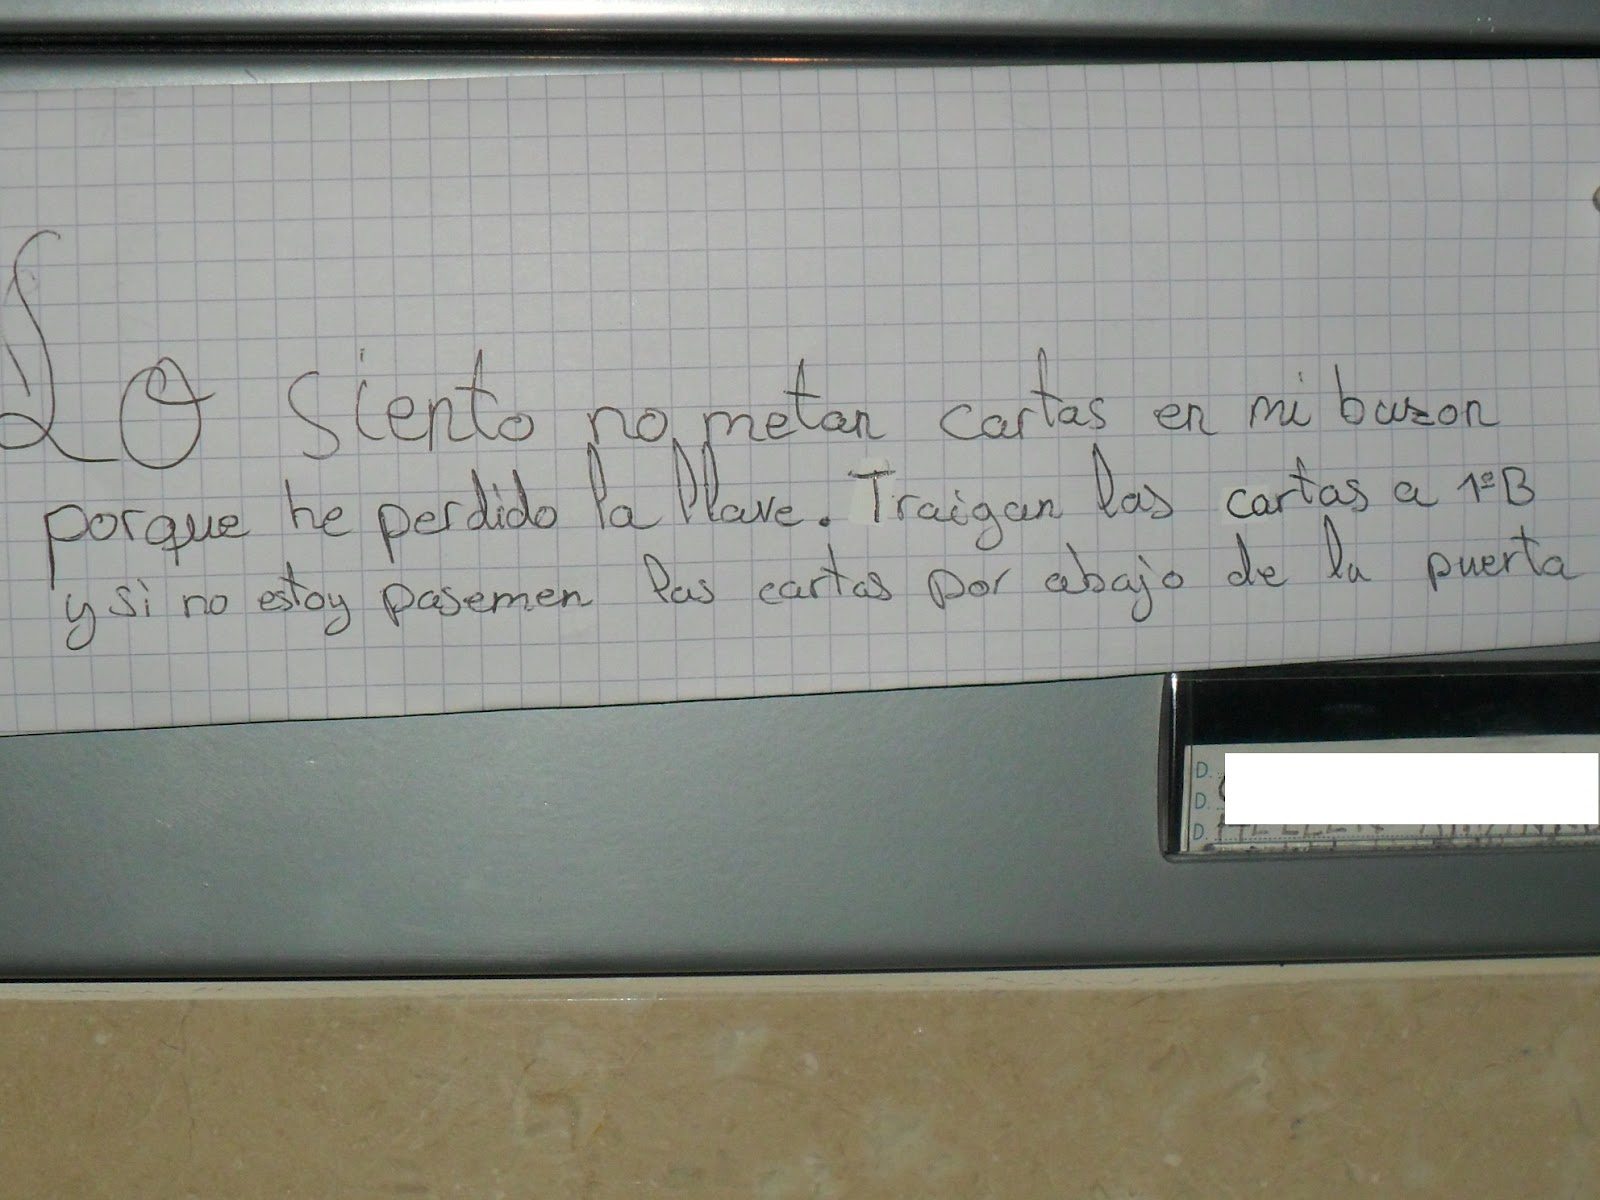 Lo siento no metan cartas en mi buzon
porque he perdido la llave. Traigan las cartas a 1ºB
y si no estoy pasemen las cartas por abajo de la puerta
D.
D.
D.